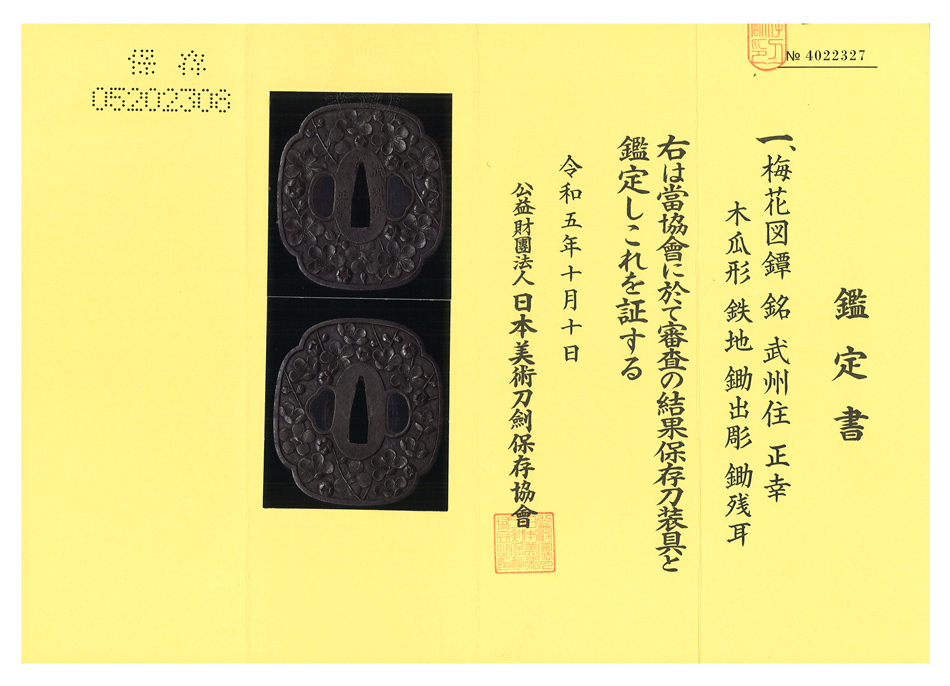 № 4022327
鑑定書
一、梅花図鐔 銘 武州住 正幸
木瓜形 鉄地 鋤出彫 鋤残耳
右は當協會に於て審査の結果保存刀装具と
鑑定しこれを証する
令和五年十月十日
公益財團法人 日本美術刀劍保存協會
保存
05202306